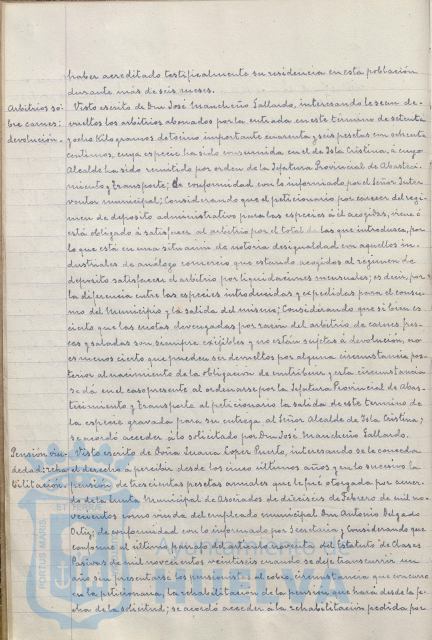 haber acreditado testificalmente su residencia en esta población
durante más de seis meses.
Arbitrios so-
bre carnes:
devolución.-
Visto escrito de Don José Mancheño Gallardo, interesando le sean de-
vueltos los arbitrios abonados por la entrada en este término de setenta
y ocho kilogramos de tocino importante cuarenta y seis pesetas con ochenta
centimos, cuya especie ha sido consumida en el de Isla Cristina, a cuyo
Alcalde ha sido remitido por orden de la Jefatura Provincial de Abasteci-
miento y Transporte; de conformidad con lo informado por el Señor Inter-
ventor municipal; Considerando que el peticionario por carecer del regi-
men de deposito administrativo para las especies á él acogidas, viene o
está obligado á satisfacer el arbitrio por el total de las que introduzca, por
lo que está en una situación de notoria desigualdad con aquellos in-
dustriales de análogo comercio que estando acogidos al regimen de
deposito satisfacen el arbitrio por liquidaciones mensuales; es decir, por
la diferencia entre las especies introducidas y expedidas para el consu-
mo del Municipio y la salida del mismo; Considerando que si bien es
cierto que las cuotas devengadas por razón del arbitrio de carnes fres-
cas y saladas son siempre exigibles y no están sujetas á devolución, no
es menos cierto que pueden ser devueltos por alguna circunstancia pos-
terior al nacimiento de la obligación de contribuir y esta circunstancia
se dá en el caso presente al ordenarse por la Jefatura Provincial de Abas-
tecimiento y transporte al peticionario la salida de este termino de
la especie gravada para su entrega al Señor Alcalde de Isla Cristina;
se acordó acceder á lo solicitado por Don José Mancheño Gallardo.
Pensión viu-
dedad: reha-
bilitación.-
Visto escrito de Doña Lucana López Puerto, interesando se le conceda
el derecho á percibir desde los cinco ultimos años y en lo sucesivo la
pensión de trescientas pesetas anuales que le fué otorgada por acuer-
do de la Junta Municipal de Asociados de dieciséis de Febrero de mil no-
vecientos como viuda del empleado municipal Don Antonio Delgado
Ortiz; de conformidad con lo informado por Secretaria y considerando que
conforme al último parrafo del articulo del Estatuto de Clases
Pasivas de mil novecientos veintiseis cuando se deje transcurrir un
año sin presentarse los pensionistas al cobro, circunstancia que concurre
en la peticionaria, la rehabilitación de la pensión que hará desde la fe-
cha de la solicitud; se acordó acceder á la rehabilitación pedida por
PORTUS MARIS
ET TERRAE
Ayuntamiento de
HUELVA